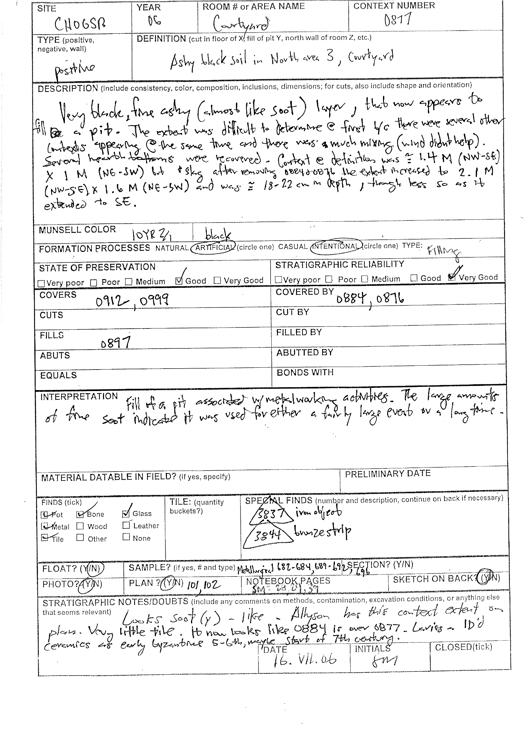 SITE YEAR ROOM # or AREA NAME CONTEXT NUMBER
CHOGSR 06 Courtyard 0877
TYPE (positive, negative, wall) DEFINITION (cut in floor of X, fill of pit Y, north wall of room Z, etc.)
positive Ashy black soil in North area 3, Courtyard
DESCRIPTION (include consistency, color, composition, inclusions, dimensions; for cuts, also include shape and orientation)
Very black, fine ashy (almost like soot) layer, that now appears to
fill a pit. The extent was difficult to determine @ first b/c there were several other
contexts appearing @ the same time and there was much mixing (wind didn't help).
Several hearth bottoms were recovered. Context @ definition was ≈ 1.4 M (NW-SE)
X 1 M (NE-SW) but after removing 0884 0876 the extent increased to 2.1 M
(NW-SE) X 1.6 M (NE-SW) and was ≈ 18-22 cm in depth, though less so as it
extended to SE.
MUNSELL COLOR 10YR 2/1 black
FORMATION PROCESSES NATURAL ARTIFICIAL (circle one) CASUAL INTENTIONAL (circle one) TYPE: Filling
STATE OF PRESERVATION STRATIGRAPHIC RELIABILITY
Very poor Poor Medium Good Very Good Very poor Poor Medium Good Very Good
COVERS 0912, 0999 COVERED BY 0884, 0876
CUTS CUT BY
FILLS 0897 FILLED BY
ABUTS ABUTTED BY
EQUALS BONDS WITH
INTERPRETATION Fill of a pit associated w/ metalworking activities. The large amounts
of fine soot indicated it was used for either a fairly large event or a long time.
MATERIAL DATABLE IN FIELD? (if yes, specify) PRELIMINARY DATE
FINDS (tick) TILE: (quantity buckets?) SPECIAL FINDS (number and description, continue on back if necessary)
Pot Bone Glass 3837 iron object
Metal Wood Leather
Tile Other None 3844 bronze strip
FLOAT? (Y/N) SAMPLE? (if yes, # and type) 682-684, 689-695, 696 SECTION? (Y/N)
PHOTO? (Y/N) PLAN? (Y/N) 101, 102 NOTEBOOK PAGES SKETCH ON BACK? (Y/N)
STRATIGRAPHIC NOTES/DOUBTS (include any comments on methods, contamination, excavation conditions, or anything else
that seems relevant) Looks soot(y) - like - Allyson has this context extent on
plans. Very little tile. It now looks like 0884 is over 0877. ID'd
ceramics as early byzantine 5-6th, maybe start of 7th century.
DATE INITIALS CLOSED(tick)
16. VII. 06 SM